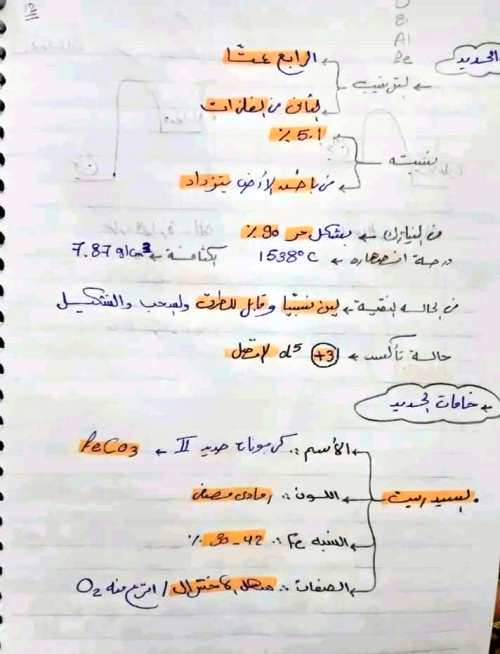 O
B
Al
Fe
الحديد
الترتيب ← الرابع عشًا
الثاني من الفلزات
نسبته ← 5.1 %
في باطن الأرض يتزداد
في النيازك ← بشكل حر 90 %
درجة انصهاره ← 1538°C الكثافة ← 7.87 g/cm³
في الحالة النقية ← لين نسبيًا وقابل للطرق والسحب والتشكيل
حالة تأكسد ← +3 d⁵ الافضل
خامات الحديد
السيدريت
الأسم :. كربونات حديد II ← FeCO3
اللون :. رمادي مصفر
النسبة Fe :. 42 - 30 %
الصفات :. سهل الاختزال / انزع منه O2